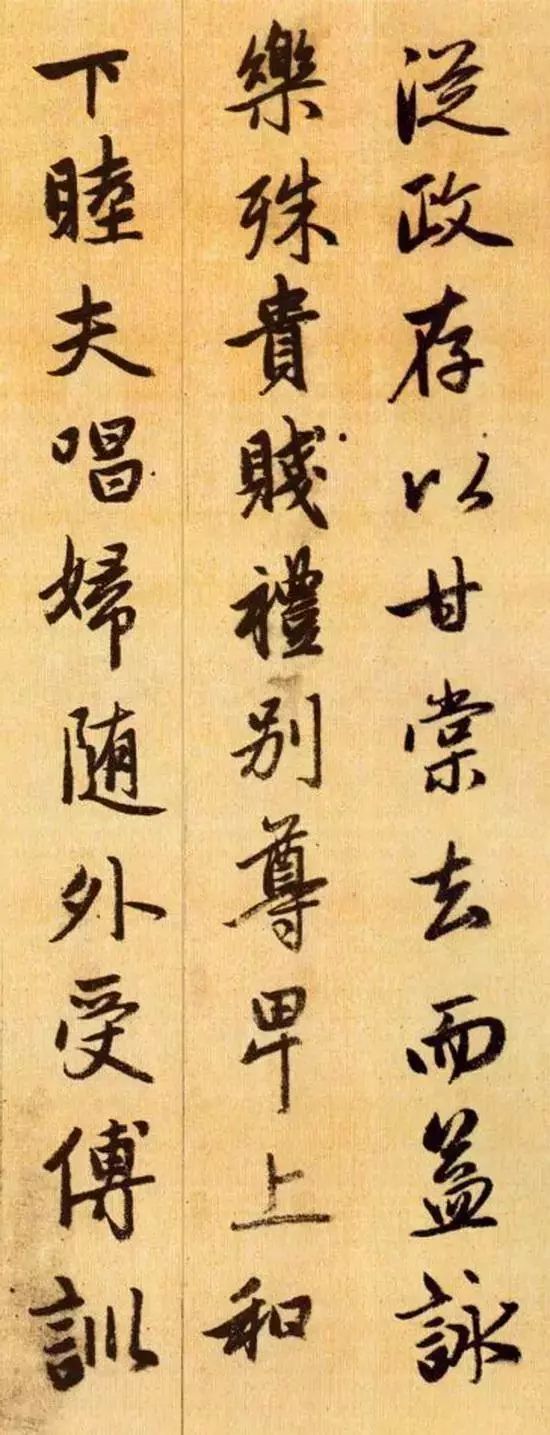 從政存以甘棠去而益詠
樂殊貴賤禮別尊卑上和
下睦夫唱婦隨外受傅訓